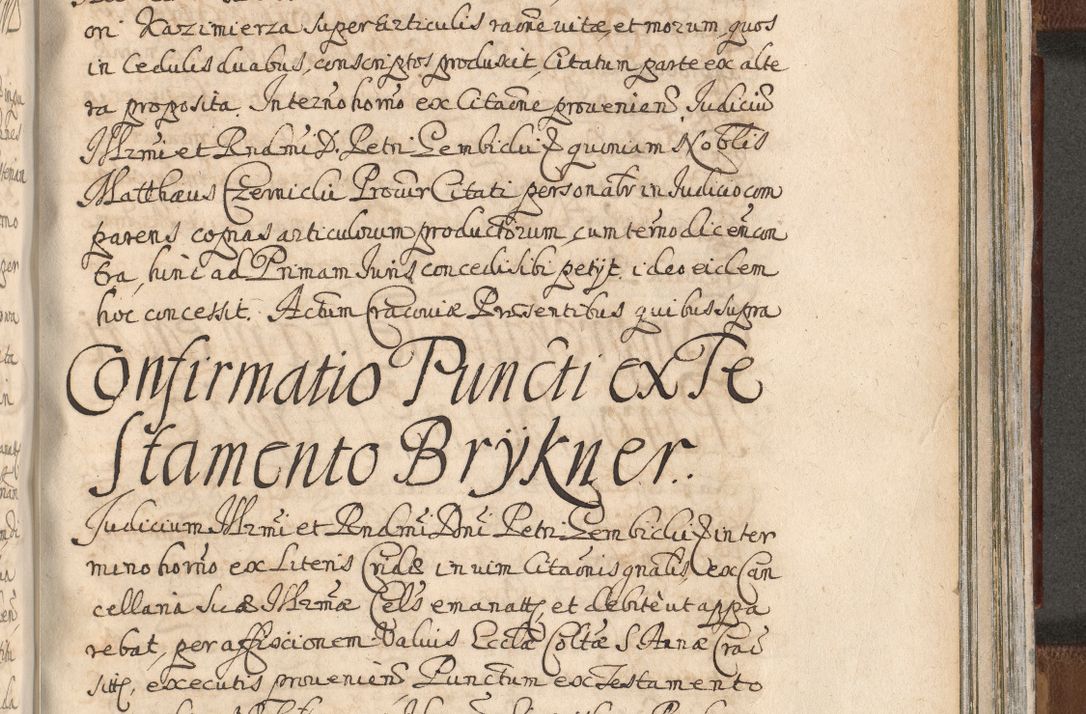 ori Kazimierza super articulis raõne vitæ, et morum, quos
in cedulis duabus, conscriptos produxit, Citatum parte ex alte
ra proposita. In termõ horño ex Citaõne provenieñ. Judiciũ
Illrmi et Rndmi D. Petri Gembicki quoniam Noblis
Matthæus Czernicki Procur Citati personalr in Judicio com
parens copias articulorum productorum, cum termo dicen con
tra, hinc ad Primam Juris concedi sibi petijt. ideo eidem
hoc concessit. Actum Cracoviæ Præsentibus quibus supra
Confirmatio Puncti ex Te
stamento Brÿkner.
Judicium Illrmi et Rndmi Dni Petri Gembicki in ter
mino horño ex Literis Cridæ in vim Citaõnis gnalis ex Can
cellaria Suæ Illrmæ Cels emanatt, et debitè ut appa
rebat, per affixionem Valvis Eccla Coltæ S. Annæ Crac
sitt, executis provenieñ Punctum ex Testamento